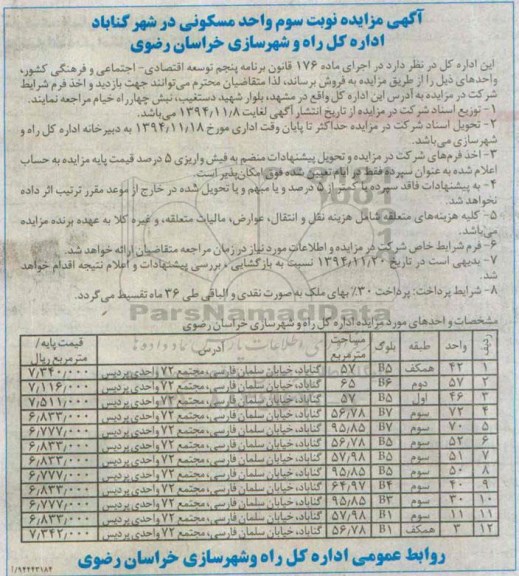 آگهی مزایده نوبت سوم واحد مسکونی در شهر گناباد
اداره کل راه و شهرسازی خراسان رضوی
این اداره کل در نظر دارد در اجرای ماده ۱۷۶ قانون برنامه پنجم توسعه اقتصادی- اجتماعی و فرهنگی کشور،
واحدهای ذیل را از طریق مزایده به فروش برساند، لذا متقاضیان محترم می‌توانند جهت بازدید و اخذ فرم شرایط
شرکت در مزایده به آدرس این اداره کل واقع در مشهد، بلوار شهید دستغیب، نبش چهارراه خیام مراجعه نمایند.
۱- توزیع اسناد شرکت در مزایده از تاریخ انتشار آگهی لغایت ۱۳۹۴/۱۱/۸ می‌باشد.
۲- تحویل اسناد شرکت در مزایده حداکثر تا پایان وقت اداری مورخ ۱۳۹۴/۱۱/۱۸ به دبیرخانه اداره کل راه و
شهرسازی می‌باشد.
۳- اخذ فرم‌های شرکت در مزایده و تحویل پیشنهادات منضم به فیش واریزی ۵ درصد قیمت پایه مزایده به حساب
اعلام شده به عنوان سپرده فقط در ایام تعیین شده فوق امکان‌پذیر است.
۴- به پیشنهادات فاقد سپرده یا کمتر از ۵ درصد و یا مبهم و یا تحویل شده در خارج از موعد مقرر ترتیب اثر داده
نخواهد شد.
۵- کلیه هزینه‌های متعلقه شامل هزینه نقل و انتقال، عوارض، مالیات متعلقه، و غیره کلا به عهده برنده مزایده
می‌باشد.
۶- فرم شرایط خاص شرکت در مزایده و اطلاعات مورد نیاز در زمان مراجعه متقاضیان ارائه خواهد شد.
۷- بدیهی است در تاریخ ۱۳۹۴/۱۱/۲۰ نسبت به بازگشایی، بررسی پیشنهادات و اعلام نتیجه اقدام خواهد
شد.
۸- شرایط پرداخت: پرداخت ۳۰٪ بهای ملک به صورت نقدی و الباقی طی ۳۶ ماه تقسیط می‌گردد.
ParsNamadData
مشخصات واحدهای مورد مزایده اداره کل راه و شهرسازی خراسان رضوی
ردیف واحد طبقه بلوک مساحت مترمربع آدرس قیمت پایه/ مترمربع ریال
۱ ۴۲ همکف B۵ ۵۷ گناباد، خیابان سلمان فارسی، مجتمع ۷۲ واحدی پردیس ۷٫۳۴۰٫۰۰۰
۲ ۵۷ دوم B۶ ۶۵ گناباد، خیابان سلمان فارسی، مجتمع ۷۲ واحدی پردیس ۷٫۱۱۶٫۰۰۰
۳ ۴۶ اول B۵ ۵۷ گناباد، خیابان سلمان فارسی، مجتمع ۷۲ واحدی پردیس ۷٫۵۱۱٫۰۰۰
۴ ۷۲ سوم B۷ ۵۶٫۷۸ گناباد، خیابان سلمان فارسی، مجتمع ۷۲ واحدی پردیس ۶٫۸۳۳٫۰۰۰
۵ ۷۰ سوم B۷ ۹۵٫۸۵ گناباد، خیابان سلمان فارسی، مجتمع ۷۲ واحدی پردیس ۶٫۷۷۷٫۰۰۰
۶ ۵۲ سوم B۵ ۵۶٫۷۸ گناباد، خیابان سلمان فارسی، مجتمع ۷۲ واحدی پردیس ۶٫۸۳۳٫۰۰۰
۷ ۵۱ سوم B۵ ۵۷٫۹۸ گناباد، خیابان سلمان فارسی، مجتمع ۷۲ واحدی پردیس ۶٫۸۳۳٫۰۰۰
۸ ۵۰ سوم B۵ ۹۵٫۸۵ گناباد، خیابان سلمان فارسی، مجتمع ۷۲ واحدی پردیس ۶٫۷۷۷٫۰۰۰
۹ ۴۰ سوم B۴ ۶۴٫۹۷ گناباد، خیابان سلمان فارسی، مجتمع ۷۲ واحدی پردیس ۶٫۸۳۳٫۰۰۰
۱۰ ۳۰ سوم B۳ ۹۵٫۸۵ گناباد، خیابان سلمان فارسی، مجتمع ۷۲ واحدی پردیس ۶٫۷۷۷٫۰۰۰
۱۱ ۱۱ سوم B۱ ۵۷٫۹۸ گناباد، خیابان سلمان فارسی، مجتمع ۷۲ واحدی پردیس ۶٫۸۳۳٫۰۰۰
۱۲ ۳ همکف B۱ ۵۶٫۷۸ گناباد، خیابان سلمان فارسی، مجتمع ۷۲ واحدی پردیس ۷٫۳۴۲٫۰۰۰
روابط عمومی اداره کل راه وشهرسازی خراسان رضوی
۹۴۴۴۳۱۸۴/آ